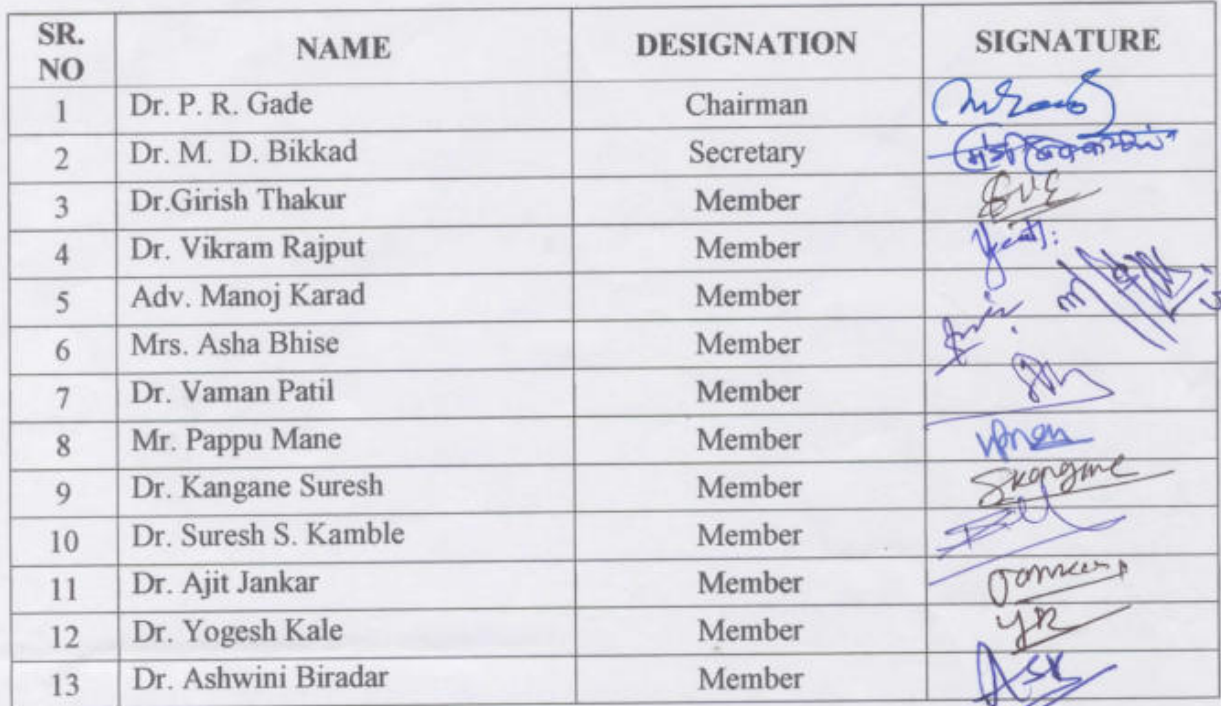 SR. NO NAME DESIGNATION SIGNATURE
1 Dr. P. R. Gade Chairman
2 Dr. M. D. Bikkad Secretary
3 Dr.Girish Thakur Member
4 Dr. Vikram Rajput Member
5 Adv. Manoj Karad Member
6 Mrs. Asha Bhise Member
7 Dr. Vaman Patil Member
8 Mr. Pappu Mane Member
9 Dr. Kangane Suresh Member Skangane
10 Dr. Suresh S. Kamble Member
11 Dr. Ajit Jankar Member
12 Dr. Yogesh Kale Member
13 Dr. Ashwini Biradar Member